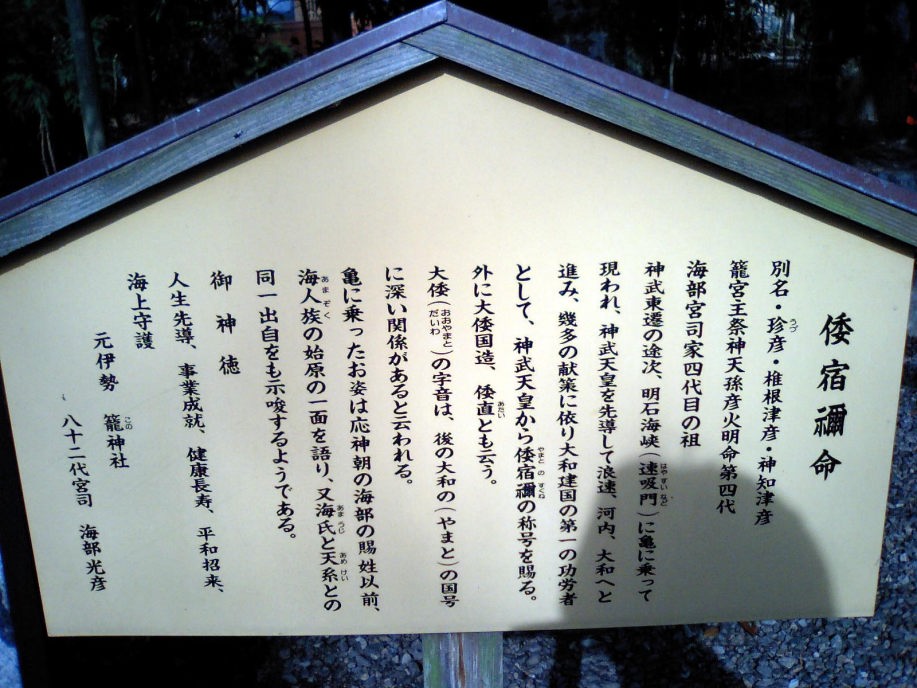 倭宿禰命
別名・珍彦・椎根津彦・神知津彦
籠宮主祭神天孫彦火明命第四代
海部宮司家四代目の祖
神武東遷の途次、明石海峡（速吸門）に亀に乗って
現われ、神武天皇を先導して浪速、河内、大和へと
進み、幾多の献策に依り大和建国の第一の功労者
として、神武天皇から倭宿禰の称号を賜る。
外に大倭国造、倭直とも云う。
大倭（おおやまと／だいわ）の字音は、後の大和の（やまと）の国号
に深い関係があると云われる。
亀に乗ったお姿は応神朝の海部の賜姓以前、
海人族の始原の一面を語り、又海氏と天系との
同一出自をも示唆するようである。
御神徳
人生先導、事業成就、健康長寿、平和招来、
海上守護
元伊勢 籠神社
八十二代宮司 海部光彦